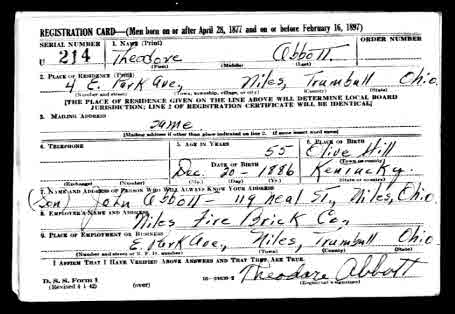 REGISTRATION CARD—(Men born on or after April 28, 1877 and on or before February 16, 1897)
SERIAL NUMBER 1. NAME (Print) ORDER NUMBER
U 214 Theodore Abbott
(First) (Middle) (Last)
2. PLACE OF RESIDENCE (Print)
4 E. Park Ave, Niles, Trumbull Ohio
(Number and street) (Town, township, village, or city) (County) (State)
[THE PLACE OF RESIDENCE GIVEN ON THE LINE ABOVE WILL DETERMINE LOCAL BOARD
JURISDICTION; LINE 2 OF REGISTRATION CERTIFICATE WILL BE IDENTICAL]
3. MAILING ADDRESS
same
[Mailing address if other than place indicated on line 2. If same insert word same]
4. TELEPHONE 5. AGE IN YEARS 6. PLACE OF BIRTH
55 Olive Hill
DATE OF BIRTH (Town or county)
Dec. 20 - 1886 Kentucky
(Exchange) (Number) (Mo.) (Day) (Yr.) (State or country)
7. NAME AND ADDRESS OF PERSON WHO WILL ALWAYS KNOW YOUR ADDRESS
(Son) John Abbott - 119 Neal St, Niles, Ohio
8. EMPLOYER'S NAME AND ADDRESS
Niles Fire Brick Co,
9. PLACE OF EMPLOYMENT OR BUSINESS
E. Park Ave, Niles, Trumbull Ohio
(Number and street or R. F. D. number) (Town) (County) (State)
I AFFIRM THAT I HAVE VERIFIED ABOVE ANSWERS AND THAT THEY ARE TRUE.
D. S. S. Form 1
(Revised 4-1-42) (over) Theodore Abbott
(Registrant's signature)